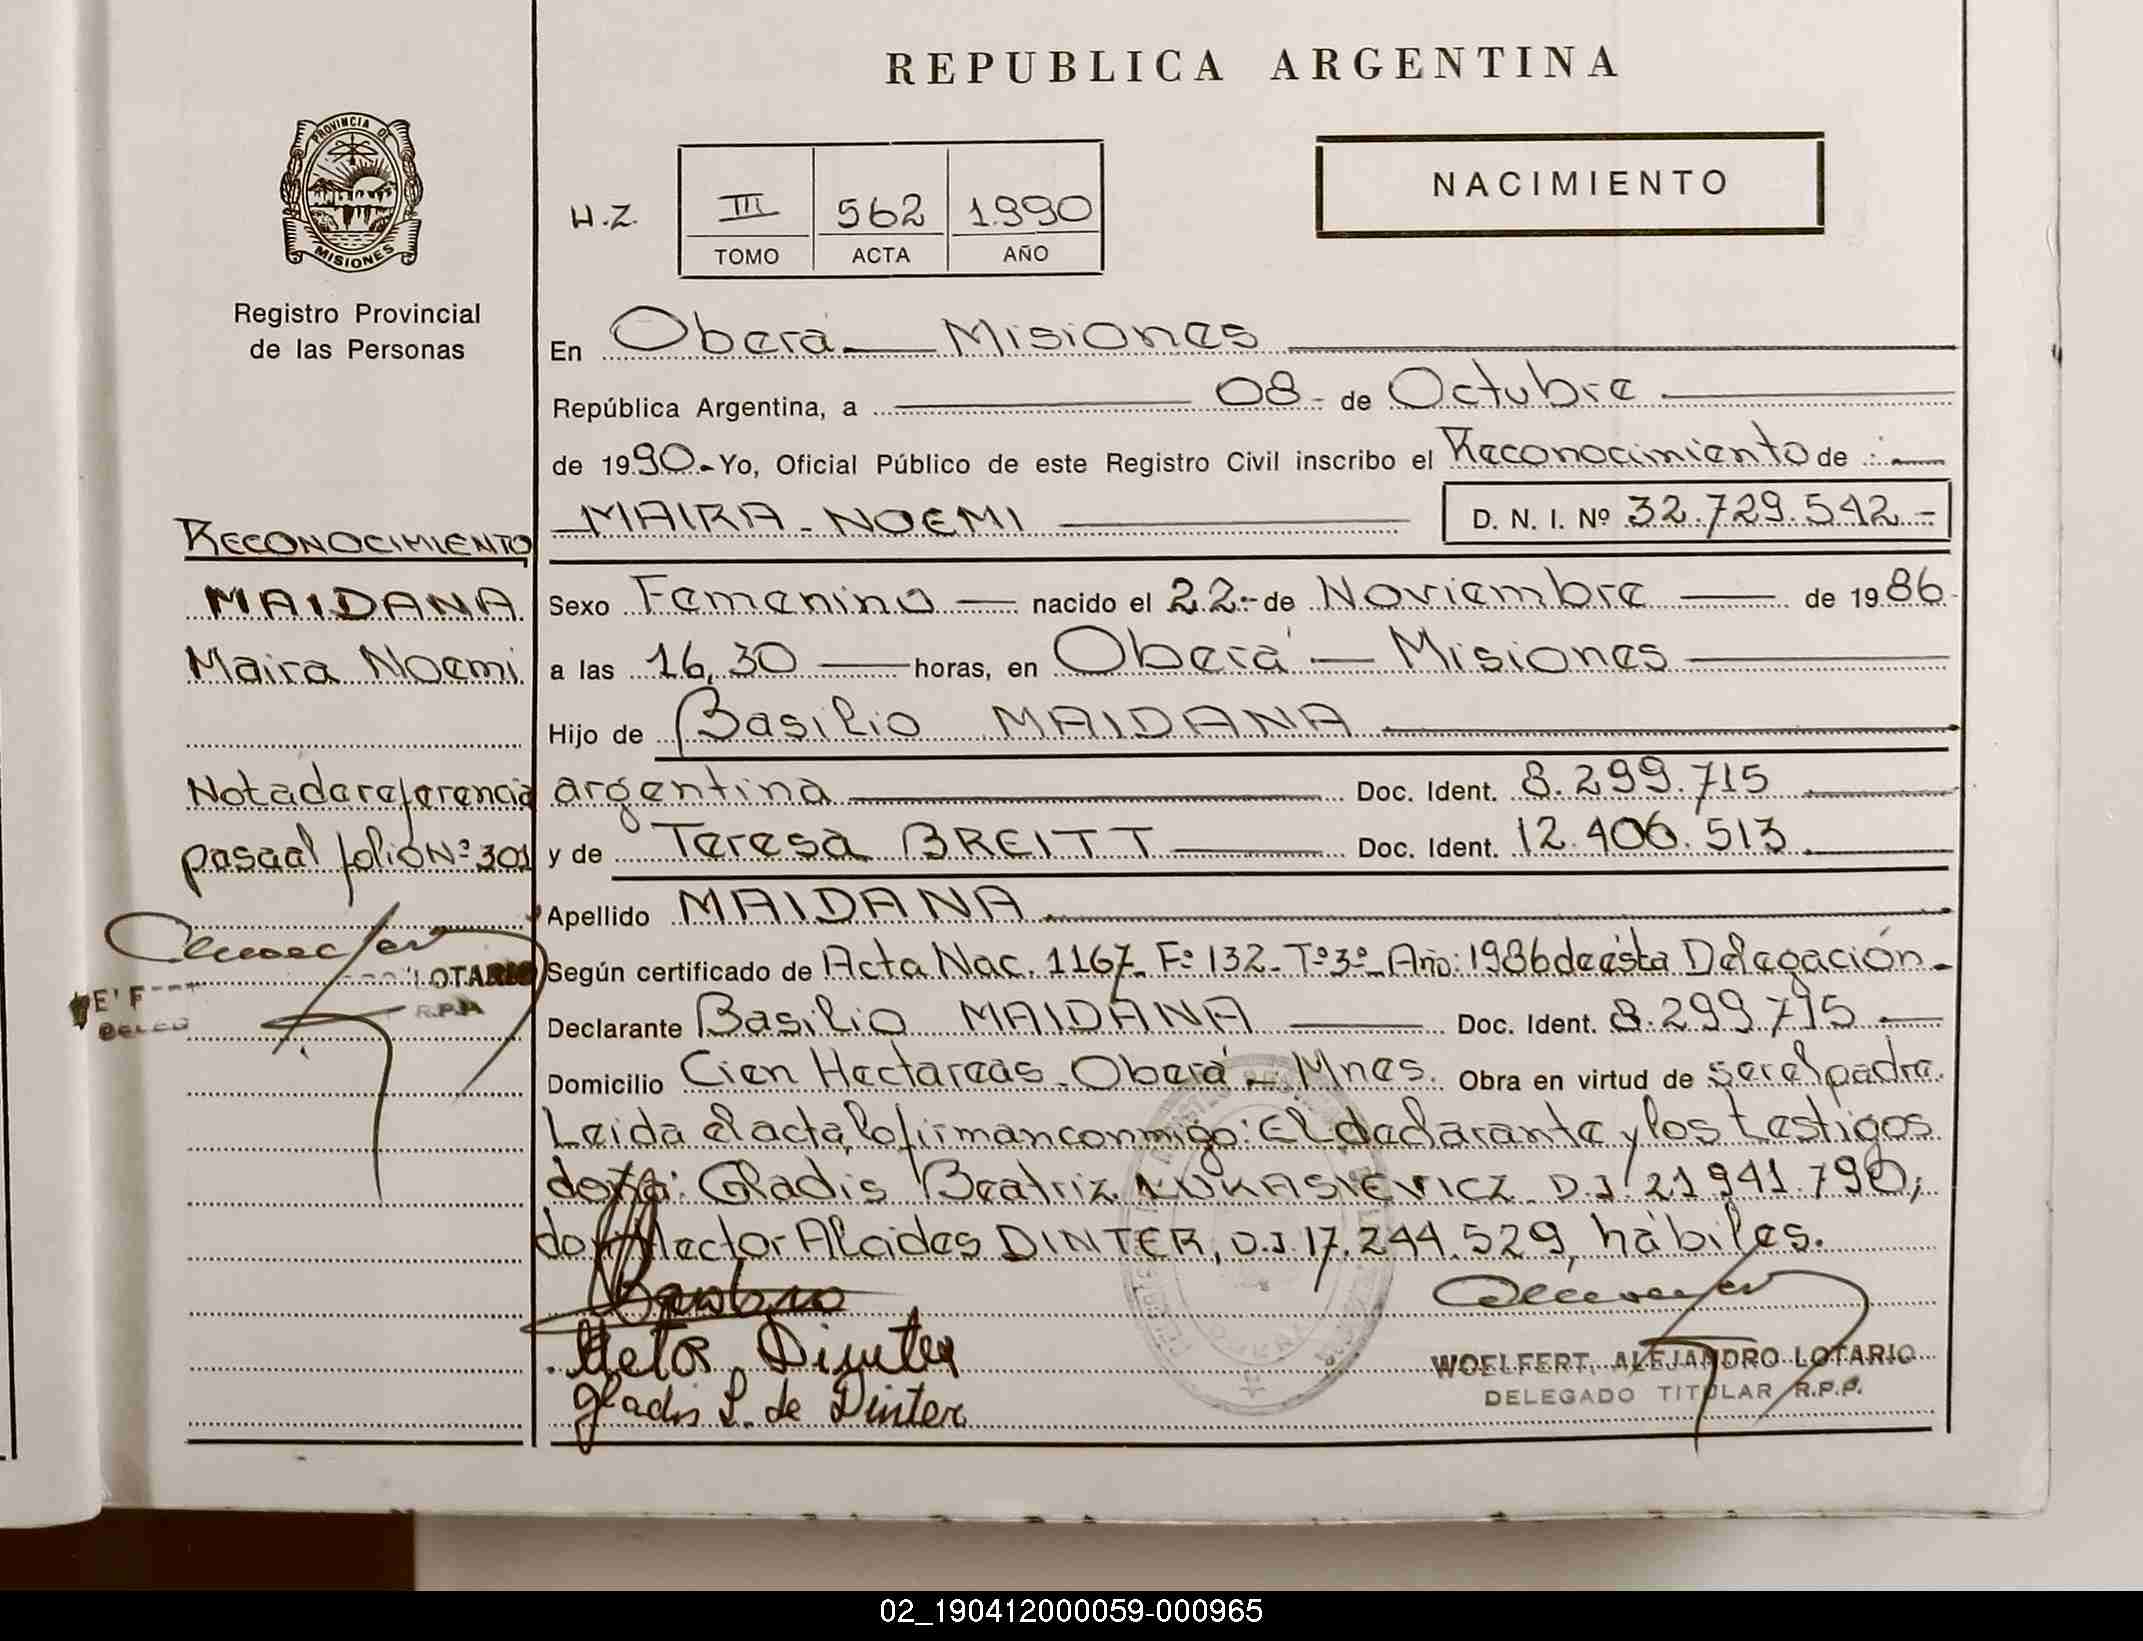 REPUBLICA ARGENTINA
PROVINCIA DE
MISIONES
Registro Provincial
de las Personas
H.Z. III 562 1.990
TOMO ACTA AÑO
NACIMIENTO
En Oberá — Misiones
República Argentina, a 08- de Octubre
de 1990.- Yo, Oficial Público de este Registro Civil inscribo el Reconocimiento de :
MAIRA - NOEMI D. N. I. Nº 32.729.542.-
Sexo Femenino nacido el 22.- de Noviembre de 1986-
a las 16,30 horas, en Oberá — Misiones
Hijo de Basilio MAIDANA
argentina Doc. Ident. 8.299.715
y de Teresa BREITT Doc. Ident. 12.406.513
Apellido MAIDANA
Según certificado de Acta Nac. 1167- Fº 132- Tº 3º- Año: 1986 de ésta Delegación.-
Declarante Basilio MAIDANA Doc. Ident. 8.299.715
Domicilio Cien Hectareas - Oberá - Mnes. Obra en virtud de ser el padre.
Leida el acta, lo firman conmigo: El declarante y los testigos
doña: Gladis Beatriz LUKASIEVICZ D.I. 21.941.790,
don Hector Alcides DINTER, D.I. 17.244.529, hábiles.
Hetor Dinter
Gladis L. de Dinter
WOELFERT, ALEJANDRO LOTARIO
DELEGADO TITULAR R.P.P.
RECONOCIMIENTO
MAIDANA
Maira Noemi
Nota de referencia
pasa al folio Nº 301
LOTARIO
R.P.P.
02_190412000059-000965